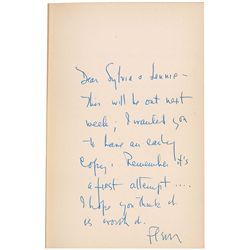 Dear Sylvia & Lennie -
This will be out next
week; I wanted you
to have an early
copy. Remember it's
a first attempt ....
I hope you think it
is worth it.